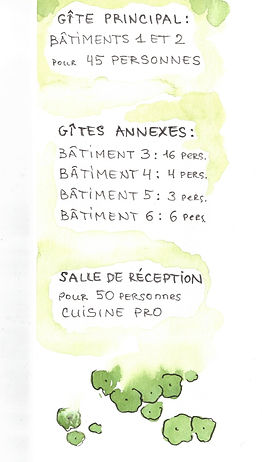 GÎTE PRINCIPAL:
BÂTIMENTS 1 ET 2
POUR 45 PERSONNES
GÎTES ANNEXES:
BÂTIMENT 3: 16 PERS.
BÂTIMENT 4: 4 PERS.
BÂTIMENT 5: 3 PERS.
BÂTIMENT 6: 6 PERS
SALLE DE RÉCEPTION
POUR 50 PERSONNES
CUISINE PRO